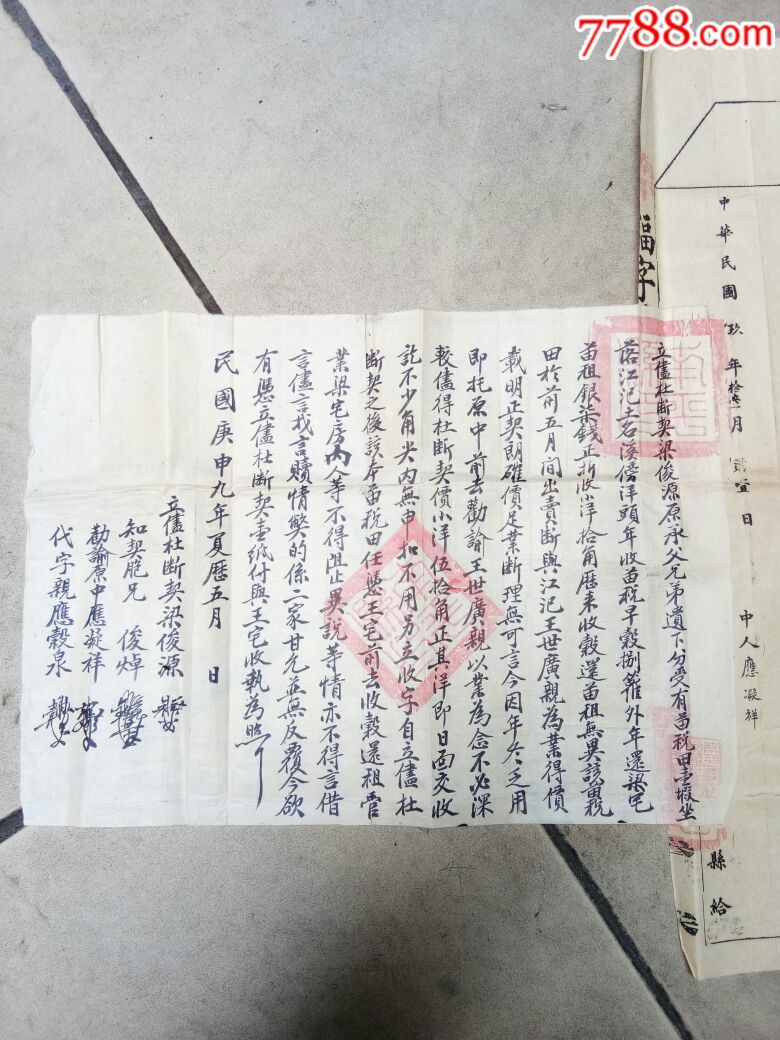 7788.com
福字
中華民國玖年拾壹月貳壹日
中人應凝祥
縣給
立儘杜断契梁俊源原承父兄弟遺下勻受有苗税田壹塅坐
落江汜土名溪傍洋頭年收苗税早穀捌籮外年還梁宅
苗租銀柒錢正折收小洋拾角歷來收穀還苗租無異該苗税
田於前五月間出賣断與江汜王世廣親為業得價
載明正契朗確價足業断理無可言今因年冬乏用
即托原中前去勸諭王世廣親以業為念不必深
較儘得杜断契價小洋伍拾角正其洋即日面交收
訖不少角尖内無申扣不用另立收字自立儘杜
断契之後該本苗税田任憑王宅前去收穀還租管
業梁宅房內人等不得阻止異説等情亦不得言借
言儘言找言贖情獘的係二家甘允並無反覆今欲
有憑立儘杜断契壹紙付與王宅收執為照
民國庚申九年夏歷五月 日
立儘杜断契梁俊源
知契胞兄 俊焯
勸諭原中應凝祥
代字親應穀泉